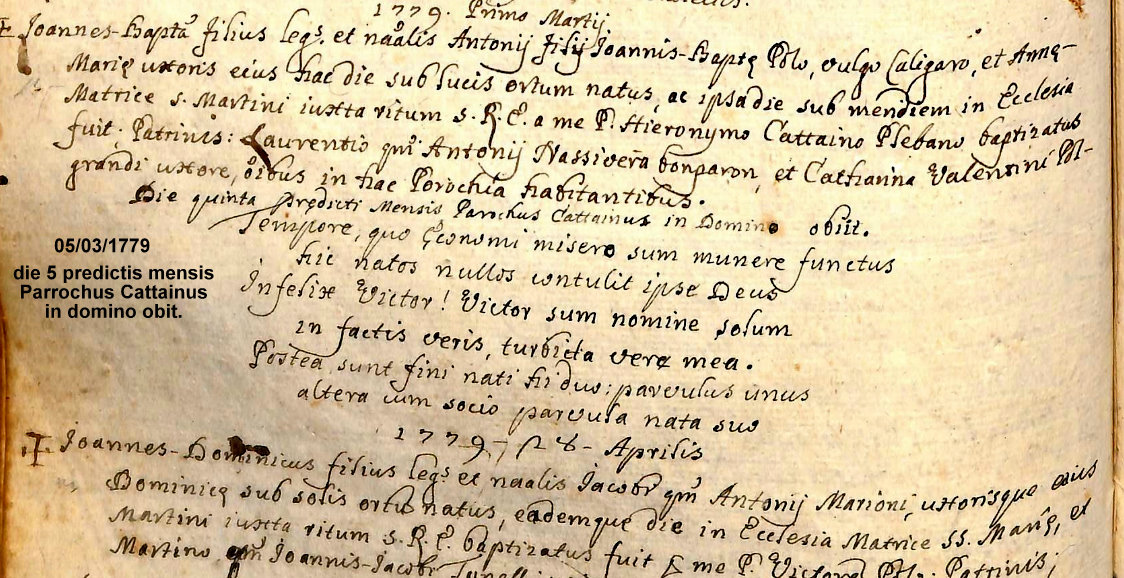 1779. Primo Martij
Joannes-Bapta filius legs. et naalis Antonij filij Joannis-Baptę Polo, vulgo Caligaro, et Annę
Marię uxoris eius hac die sub lucis ortum natus, ac ipsa die sub meridiem in Ecclesia
Matrice S. Martini iuxta ritum S. R. E. a me P. Hieronymo Cattaino Plebano baptizatus
fuit. Patrinis: Laurentio qm Antonij Nassivera bonparon, et Catharina Valentini Pol-
grandi uxore, oibus in hac Parochia habitantibus.
Die quinta prędicti Mensis Parochus Cattainus in Domino obiit.
Tempore, quo Ęconomi misero sum munere functus
hic natos nullos contulit ipse Deus
Infelix Victor! Victor sum nomine solum
in factis veris, turbida vere mea.
Postea sunt fini nati hi duo; parvulus unus
altera cum socio parvula nata suo
05/03/1779
die 5 predictis mensis
Parrochus Cattainus
in domino obit.
1779 28 - Aprilis
Joannes-Dominicus filius legs et naalis Jacobi qm Antonij Marioni, uxorisque eius
Dominicę sub solis ortu natus, eademque die in Ecclesia Matrice SS. Marię, et
Martini iuxta ritum S. R. E. baptizatus fuit a me P. Victore Polo. Patrinis,
Martino qm Joannis-Jacobi